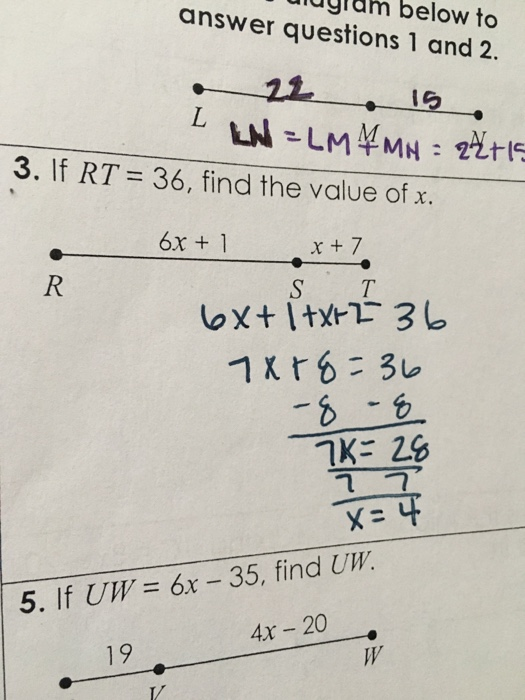 below to
answer questions 1 and 2.
22 15
L M N
LN = LM + MN = 22+15
3. If RT = 36, find the value of x.
6x + 1 x + 7
R S T
6x+1+x+7=36
7x+8=36
-8 -8
7x=28
7 7
x=4
5. If UW = 6x – 35, find UW.
19 4x – 20
V W